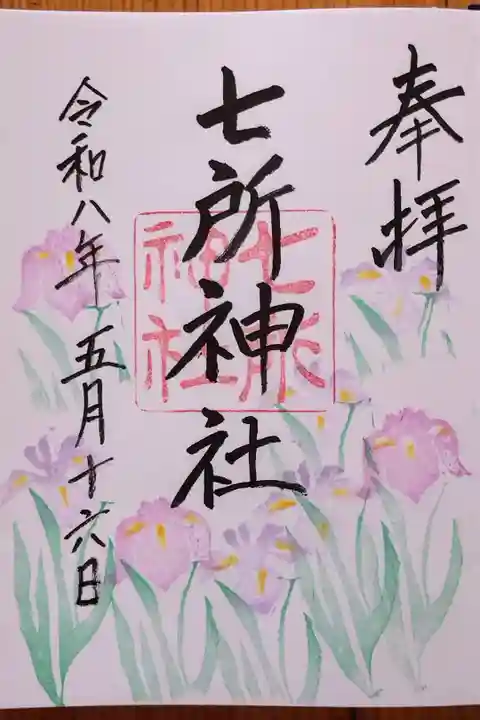 奉拝
七所神社
七所
神社
令和八年五月十六日